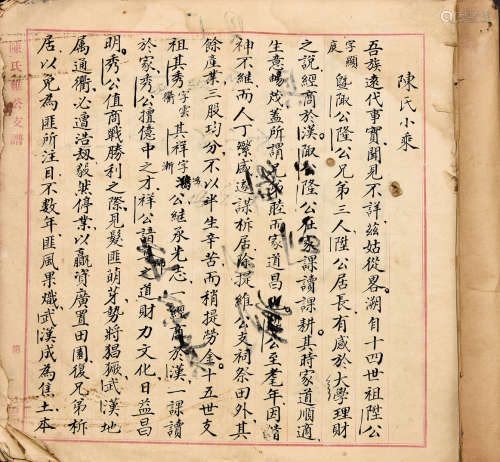 陳氏小乘
吾族遠代事實聞見不詳茲姑從畧溯自十四世祖陞公
字國庭暨陬公隆公兄弟三人陞公居長有感於大學理財
之說經商於漢陬公隆公在家課讀課耕其時家道順適
生意暢茂蓋所謂兄弟睦而家道昌 公至耄年因諧
神不維而人丁繁盛遠謀析居除提維公支祠祭田外其
餘產業三股均分不以半生辛苦而稍提勞金十五世支
祖其秀字雲衢其祥字鴻漸 公維承先志一經商於漢一課讀
於家秀公擅億中之才祥公 之道財力文化日益昌
明秀公值商戰勝利之際見髮匪萌芽勢將猖獗武漢地
属通衢必遭浩劫毅然停業以贏資廣置田園復兄弟析
居以免為匪所注目不数年匪風果熾武漢成為焦土本
陳氏維公支譜
第